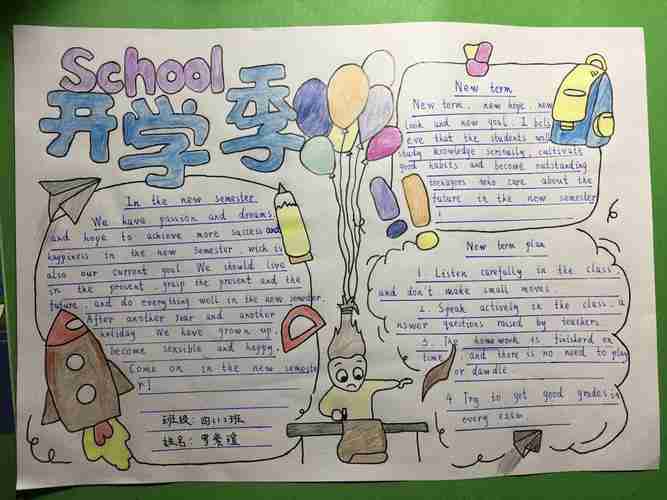 School
开学季
In the new semester
We have passion and dreams
and hope to achieve more success and
happiness in the new semester, wich is
also our current goal We should live
in the present, grasp the present and the
future, and do everything well in the new semester.
After another year and another
holiday We have grown up,
become sensible and happy.
Come on in the new semeste
r!
班级: 四(1)班
姓名:
New term
New term, new hope, new
look and new goal. I beli
eve that the students will
study knowledge seriously, cultivate
good habits and become outstanding
teenagers who care about the
future in the new semester
!
New term plan
1 Listen carefully in the class,
and don't make small moves.
2. Speak actively in the class, a
nswer questions raised by teachers
3. The homework is finisderd on
time, and there is no need to play
or dawdle
4 Try to get good grades in
every exam